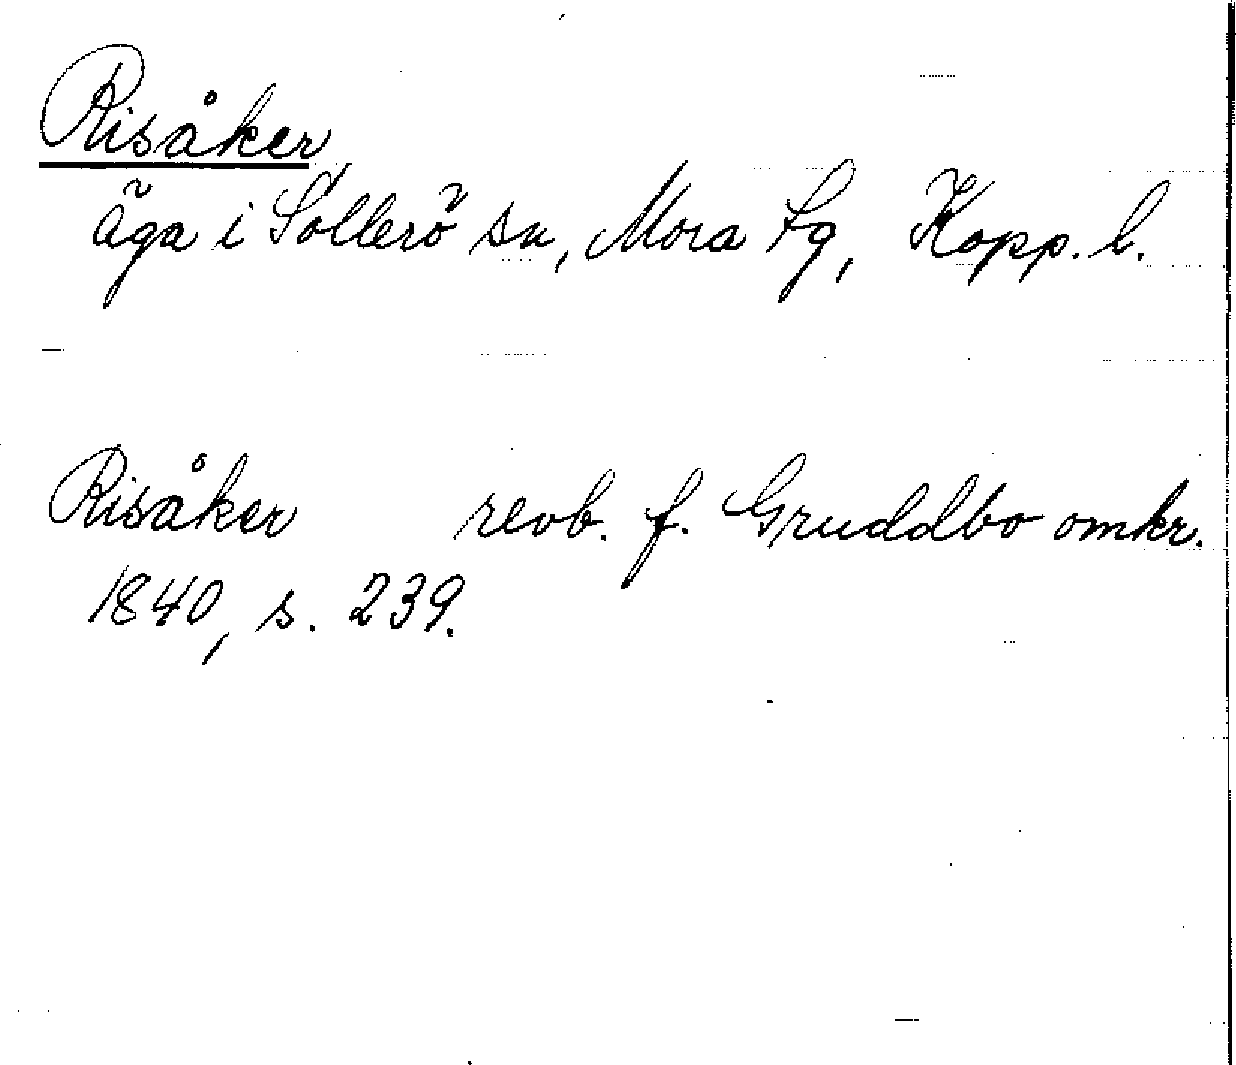 Risåker
äga i Sollerö sn, Mora tg, Kopp. l.
Risåker revb. f. Gruddbo omkr.
1840, s. 239.